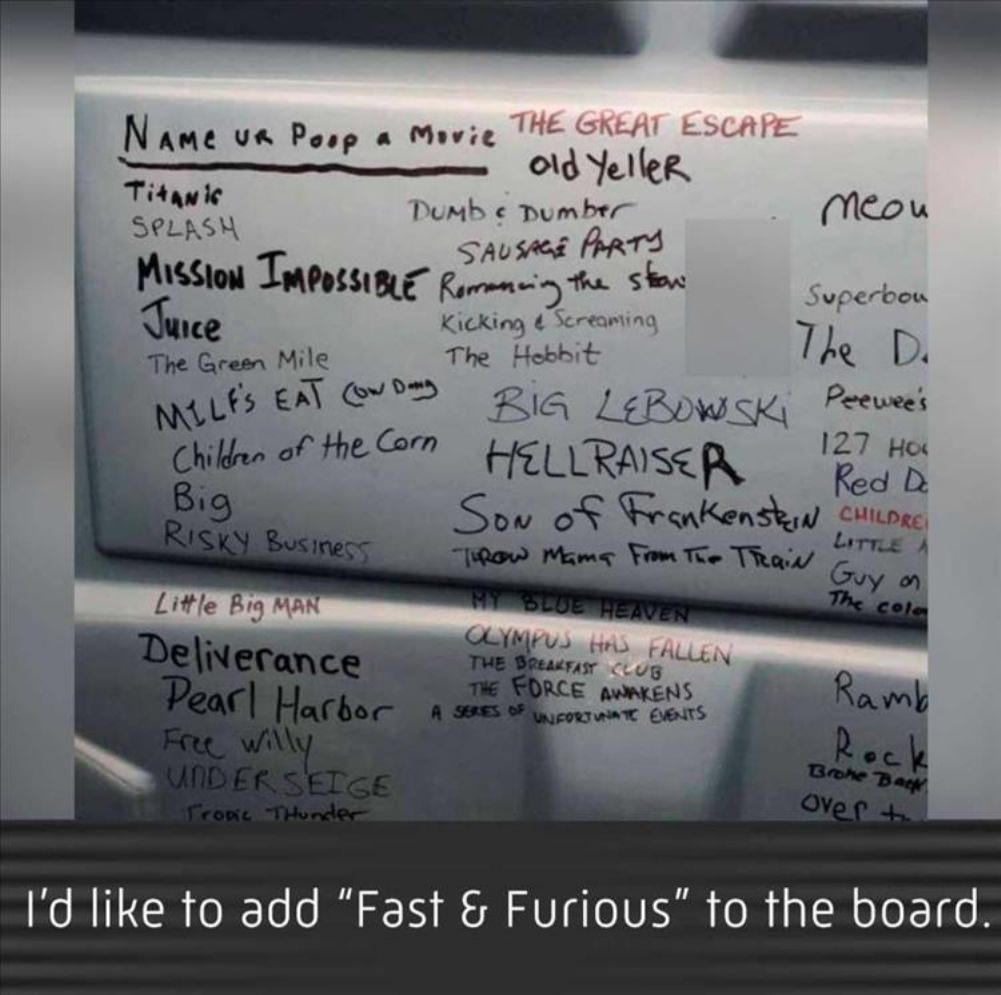 NAME UR POOP a Movie
THE GREAT ESCAPE
Old Yeller
TiTANic
SPLASH
MISSION IMPOSSIBLE
Juice
The Green Mile
MILF's EAT Cow Dung
Children of the Corn
Big
RISKY Business
Little Big MAN
Deliverance
Pearl Harbor
Free Willy
UNDER SEIGE
Tropic THunder
DUMb & DUMber
SAUSAGE PARTY
Romancing the Stone
Kicking & Screaming
The Hobbit
BIG LEBOWSKi
HELLRAISER
SON of FrankensteIN
THROW MAMA From The TRaiN
MY BLUE HEAVEN
OLYMPUS HAS FALLEN
THE BREAKFAST CLUB
THE FORCE AWAKENS
A SERIES OF UNFORTUNATE EVENTS
meow
Superbow
The D.
Peewee's
127 Ho
Red D
CHILDRE
LITTLE
Guy on
The colo
Ramb
Rock
Broke Back
over t
I'd like to add “Fast & Furious” to the board.